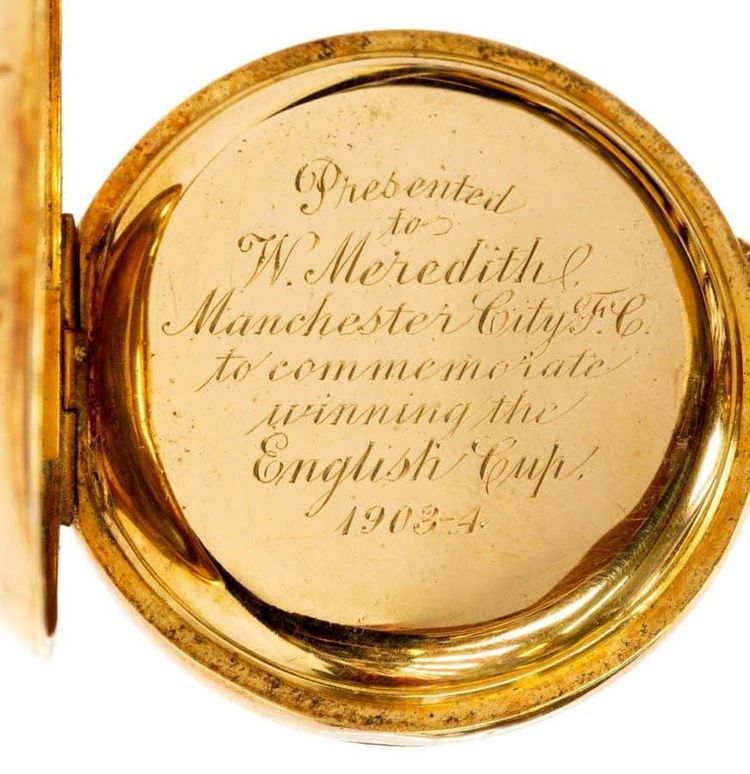 Presented
to
W. Meredith,
Manchester City F.C.
to commemorate
winning the
English Cup.
1903-4.